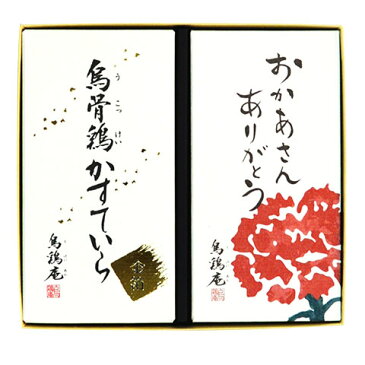 おかあさん
ありがとう
烏鶏庵
烏骨鶏かすていら
うこっけい
金箔
烏鶏庵